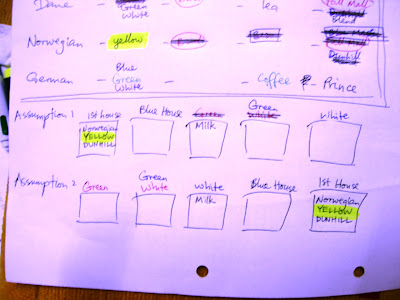 Dane - Green - tea - Pall Mall
White Blend
Norwegian - yellow -
Blue
German - Green - Coffee - Prince
White
Assumption 1 1st house Blue House Green White
Norwegian Milk
YELLOW
DUNHILL
Assumption 2 Green Green White Blue House 1st House
White Milk Norwegian
YELLOW
DUNHILL